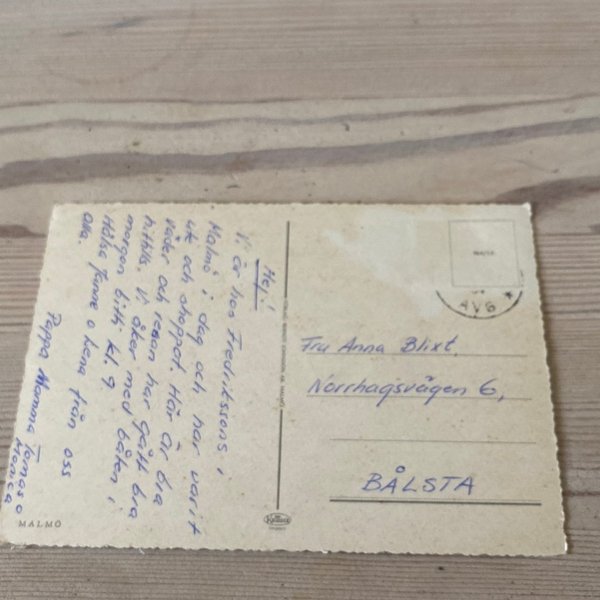 Hej!
Vi är hos Fredrikssions i
Malmö i dag och har varit
ute och shoppat. Här är bra
väder och resan har gått bra
hittills. Vi åker med båten i
morgon bitti kl. 9
Hälsa Janne o Lena från oss
alla.
Pappa Mamma Tomas o
Monica
MALMÖ
AVG
Fru Anna Blixt
Norrhagsvägen 6,
BÅLSTA